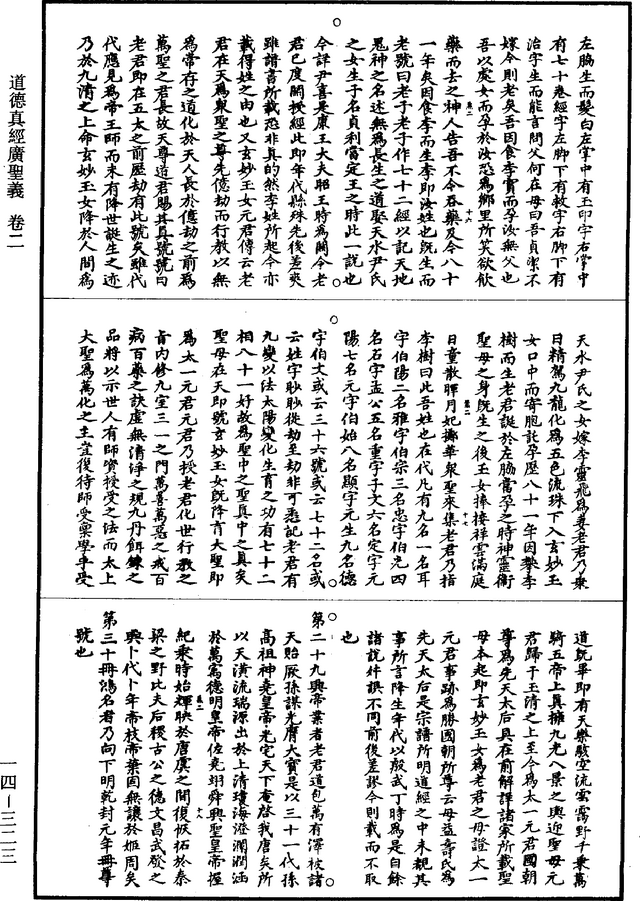 道德真經廣聖義　卷二
一四－三二三
左脇生而髮白左掌中有玉印字右掌中
有七十卷經字左脚下有敕字右脚下有
治字生而能言問父何在母曰吾貞潔不
嫁今則老矣吾因食李實而孕汝無父也
吾以處女而孕於汝恐為鄉里所笑欲飲
藥而去之神人告吾不令吞藥及今八十
卷二
十六
一年矣因食李而生李即汝姓也既生而
老號曰老子老子作七十二經以記天地
鬼神之名述無為長生之道娶天水尹氏
之女生子名貞利當定王之時此一說也
今詳尹喜是康王大夫昭王時為關令老
君已度關授經此即年代懸殊先後差爽
雖譜書所載恐非真的然李姓所起今亦
載得姓之由也又玄妙玉女元君傳云老
君在天為眾聖之尊先億劫而行教以無
為常存之道化於天人長於億劫之前為
萬聖之君長故天尊道君賜其真號號曰
老君即在五太之前歷劫有此號矣雖代
代應見為帝王師而未有降世誕生之迹
乃於九清之上命玄妙玉女降於人間為
天水尹氏之女嫁李靈飛為妻老君乃乘
日精駕九龍化為五色流珠下入玄妙玉
女口中而寄胞託孕歷八十一年因攀李
樹而生老君誕於左脇當孕之時神靈衛
聖母之身既生之後玉女捧接祥雲滿庭
卷二
十七
日童散暉月妃擲華眾聖來集老君乃指
李樹曰此吾姓也在代凡有九名一名耳
字伯陽二名雅字伯宗三名忠字伯光四
名石字孟公五名重字子文六名定字元
陽七名元字伯始八名顯字元生九名德
字伯文或云三十六號或云七十二名或
云姓字眇眇從劫至劫非可悉記老君有
九變以法太陽變化生育之功有七十二
相八十一好故為聖中之聖真中之真矣
聖母在天即號玄妙玉女既降育大聖即
為太一元君元君乃授老君化世行教之
旨內修九室三一之門萬善萬惡之戒百
病百藥之訣虛無清淨之規九丹餌鍊之
品將以示世人有師資授受之法而太上
大聖為萬化之主豈復待師受稟學乎受
道既畢即有天樂駭空流雲靄野千乘萬
騎五帝上真擁九光八景之輿迎聖母元
君歸于玉清之上至今為太一元君國朝
尊為先天太后具在前解譯諸家所載聖
母本起即玄妙玉女為老君之母證太一
元君事跡為勝國朝所尊云母益壽氏為
先天太后是宗譜所明道經之中未覩其
事所言降生年代以殷武丁時為是自餘
諸說舛誤不同前後差謬今則載而不取
也
第二十九興帝業者老君道包萬有澤被諸
天貽厥孫謀光膺大寶是以三十一代孫
高祖神堯皇帝光宅天下奄啓我唐矣所
以天潢流瑞源出於上清瓊海澄瀾潤涵
於萬㝢德明皇帝佐堯翊舜興聖皇帝握
卷二
十八
紀乘時始輝映於唐虞之間復恢拓於秦
梁之野比夫后稷古公之德文昌武發之
興卜代卜年帝枝帝葉固無讓於姬周矣
第三十冊鴻名者乃向下明乾封元年冊尊
號也